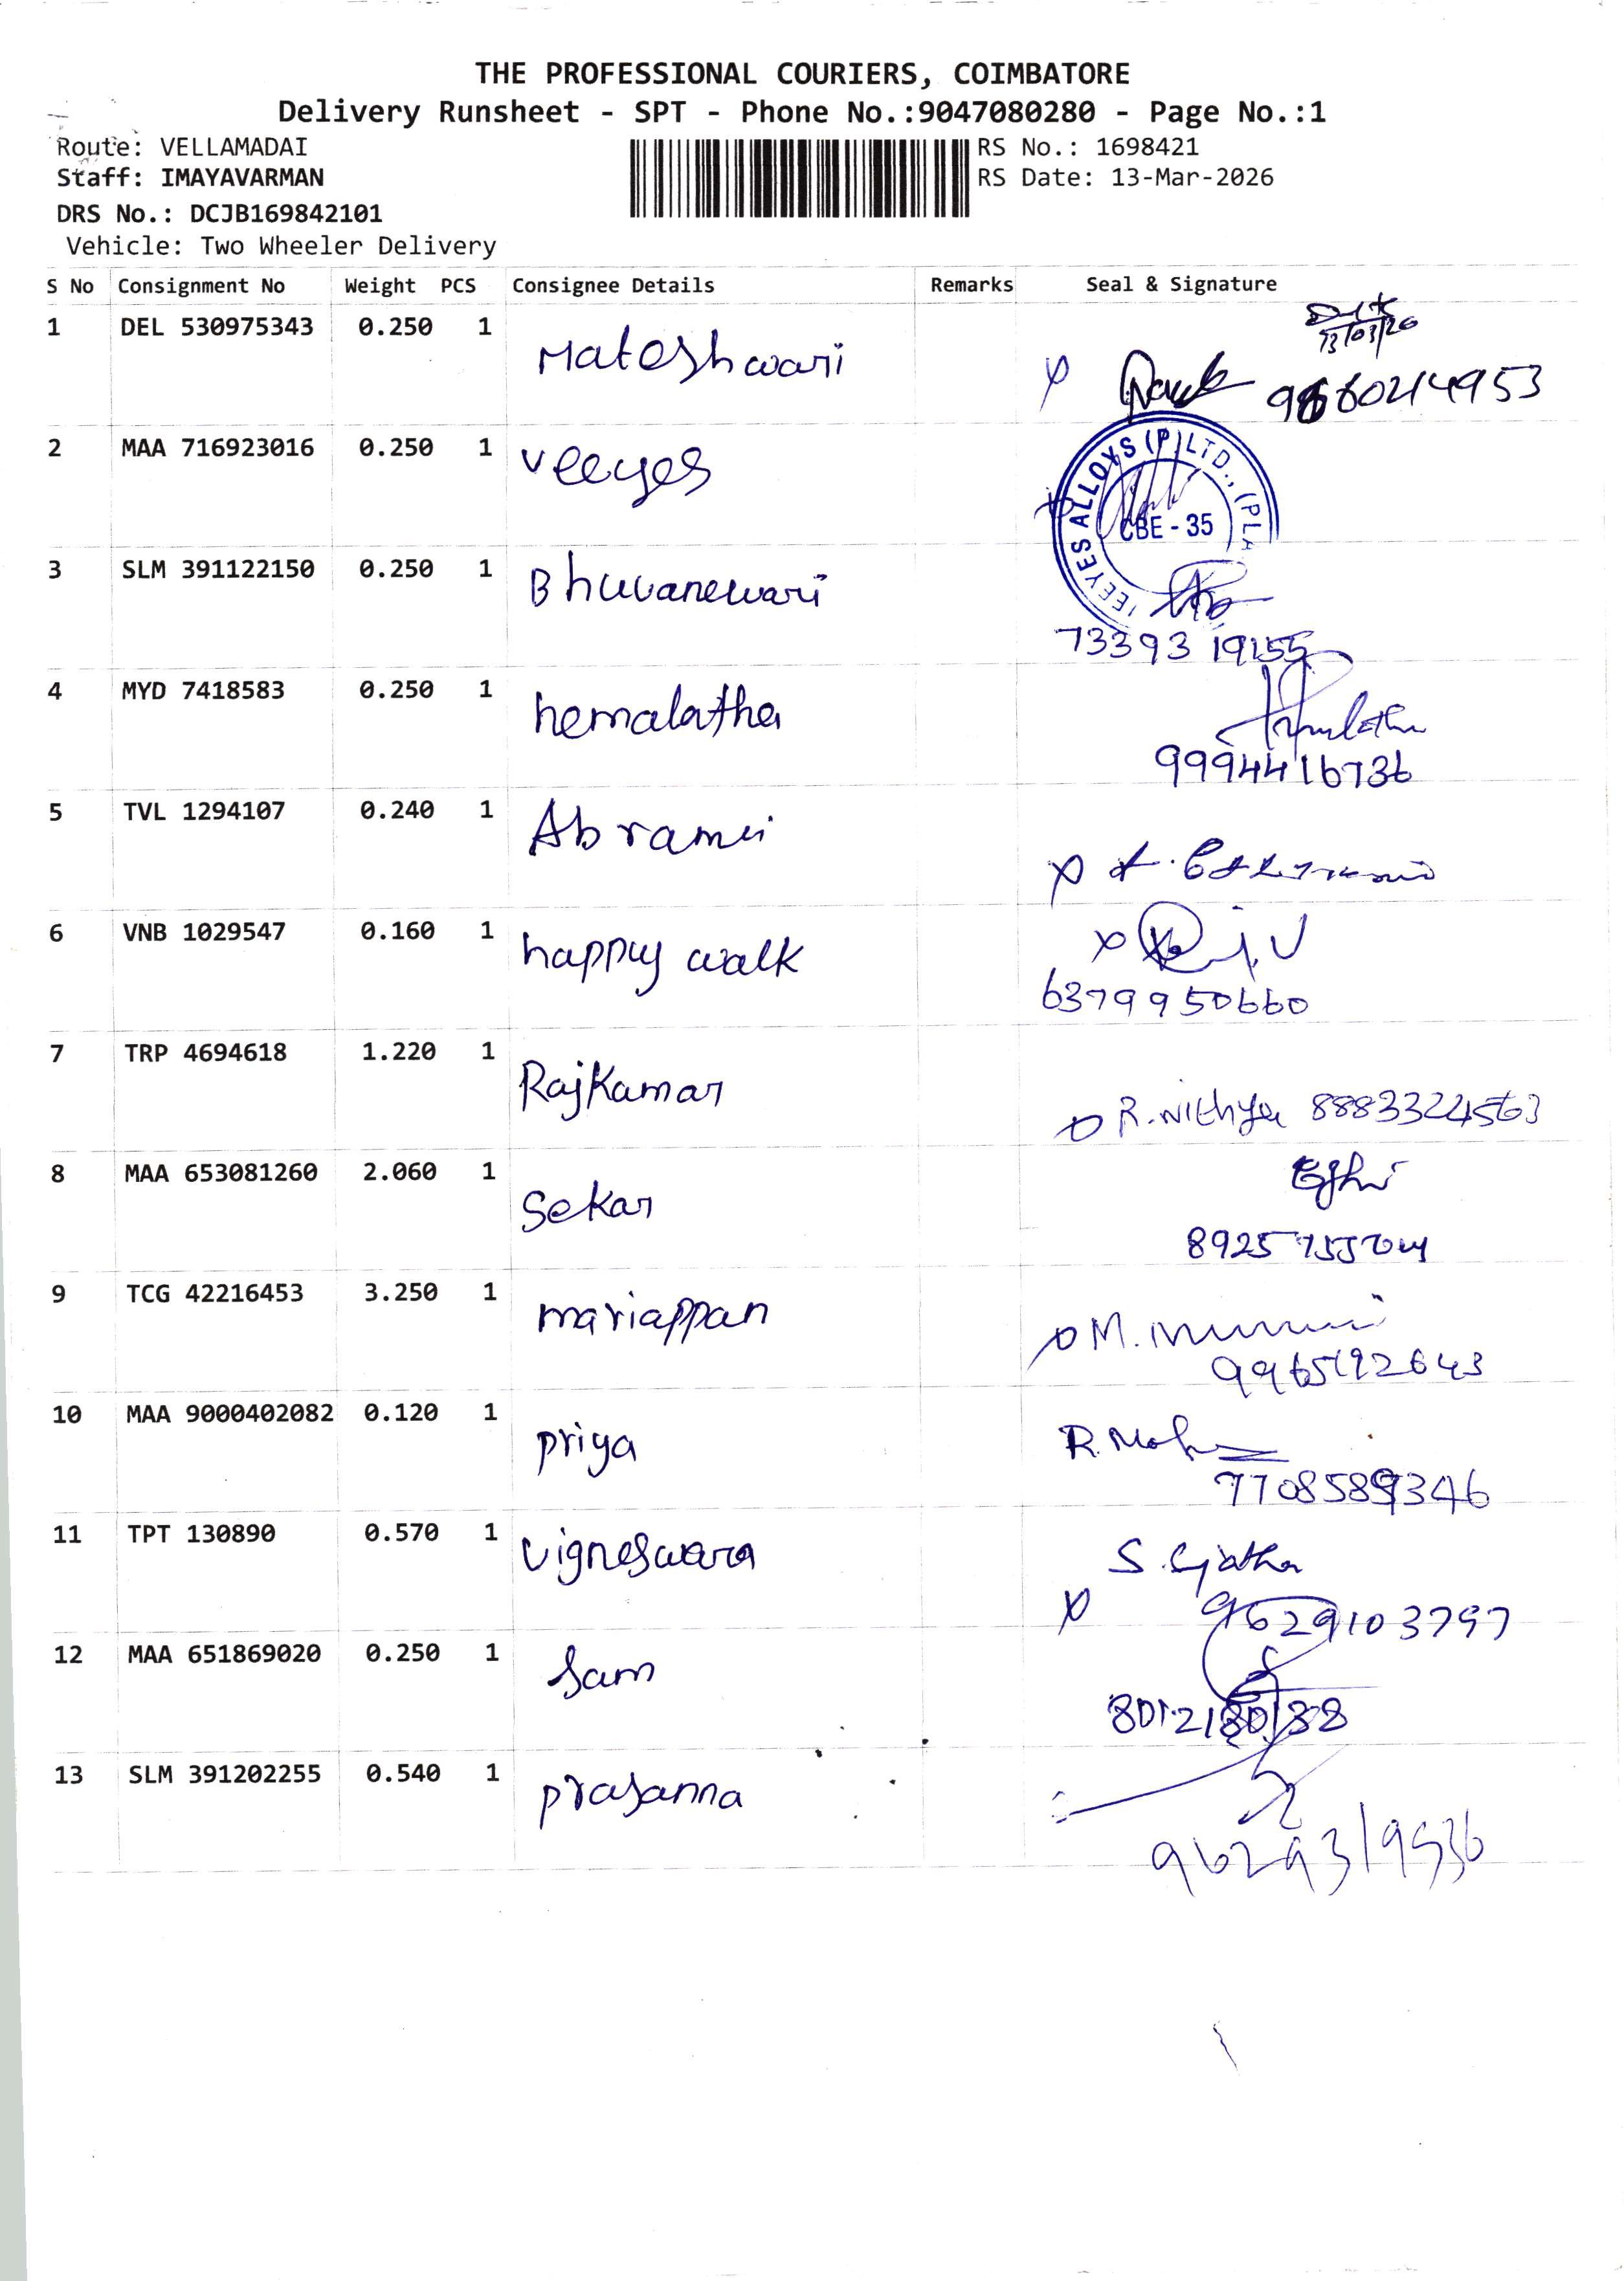 THE PROFESSIONAL COURIERS, COIMBATORE
Delivery Runsheet - SPT - Phone No.:9047080280 - Page No.:1
Route: VELLAMADAI
RS No.: 1698421
Staff: IMAYAVARMAN
RS Date: 13-Mar-2026
DRS No.: DCJB169842101
Vehicle: Two Wheeler Delivery
S No Consignment No Weight PCS Consignee Details Remarks Seal & Signature
13/03/26
1 DEL 530975343 0.250 1 Mateshwari
2 MAA 716923016 0.250 1 veeyes
EEYES ALLOYS (P) LTD., (PLA
CBE - 35
3 SLM 391122150 0.250 1 Bhuvanewari
73393 19155
4 MYD 7418583 0.250 1 hemalatha
9994416736
5 TVL 1294107 0.240 1 Abrami
6 VNB 1029547 0.160 1 happy walk
6379950660
7 TRP 4694618 1.220 1 Rajkumar
R. Nithya 88833224563
8 MAA 653081260 2.060 1 Sekar
8925
9 TCG 42216453 3.250 1 mariappan
9965192643
10 MAA 9000402082 0.120 1 priya
R. Moh
7708589346
11 TPT 130890 0.570 1 vigneswara
S.
9629103797
12 MAA 651869020 0.250 1 Sam
13 SLM 391202255 0.540 1 prasanna
9629319536